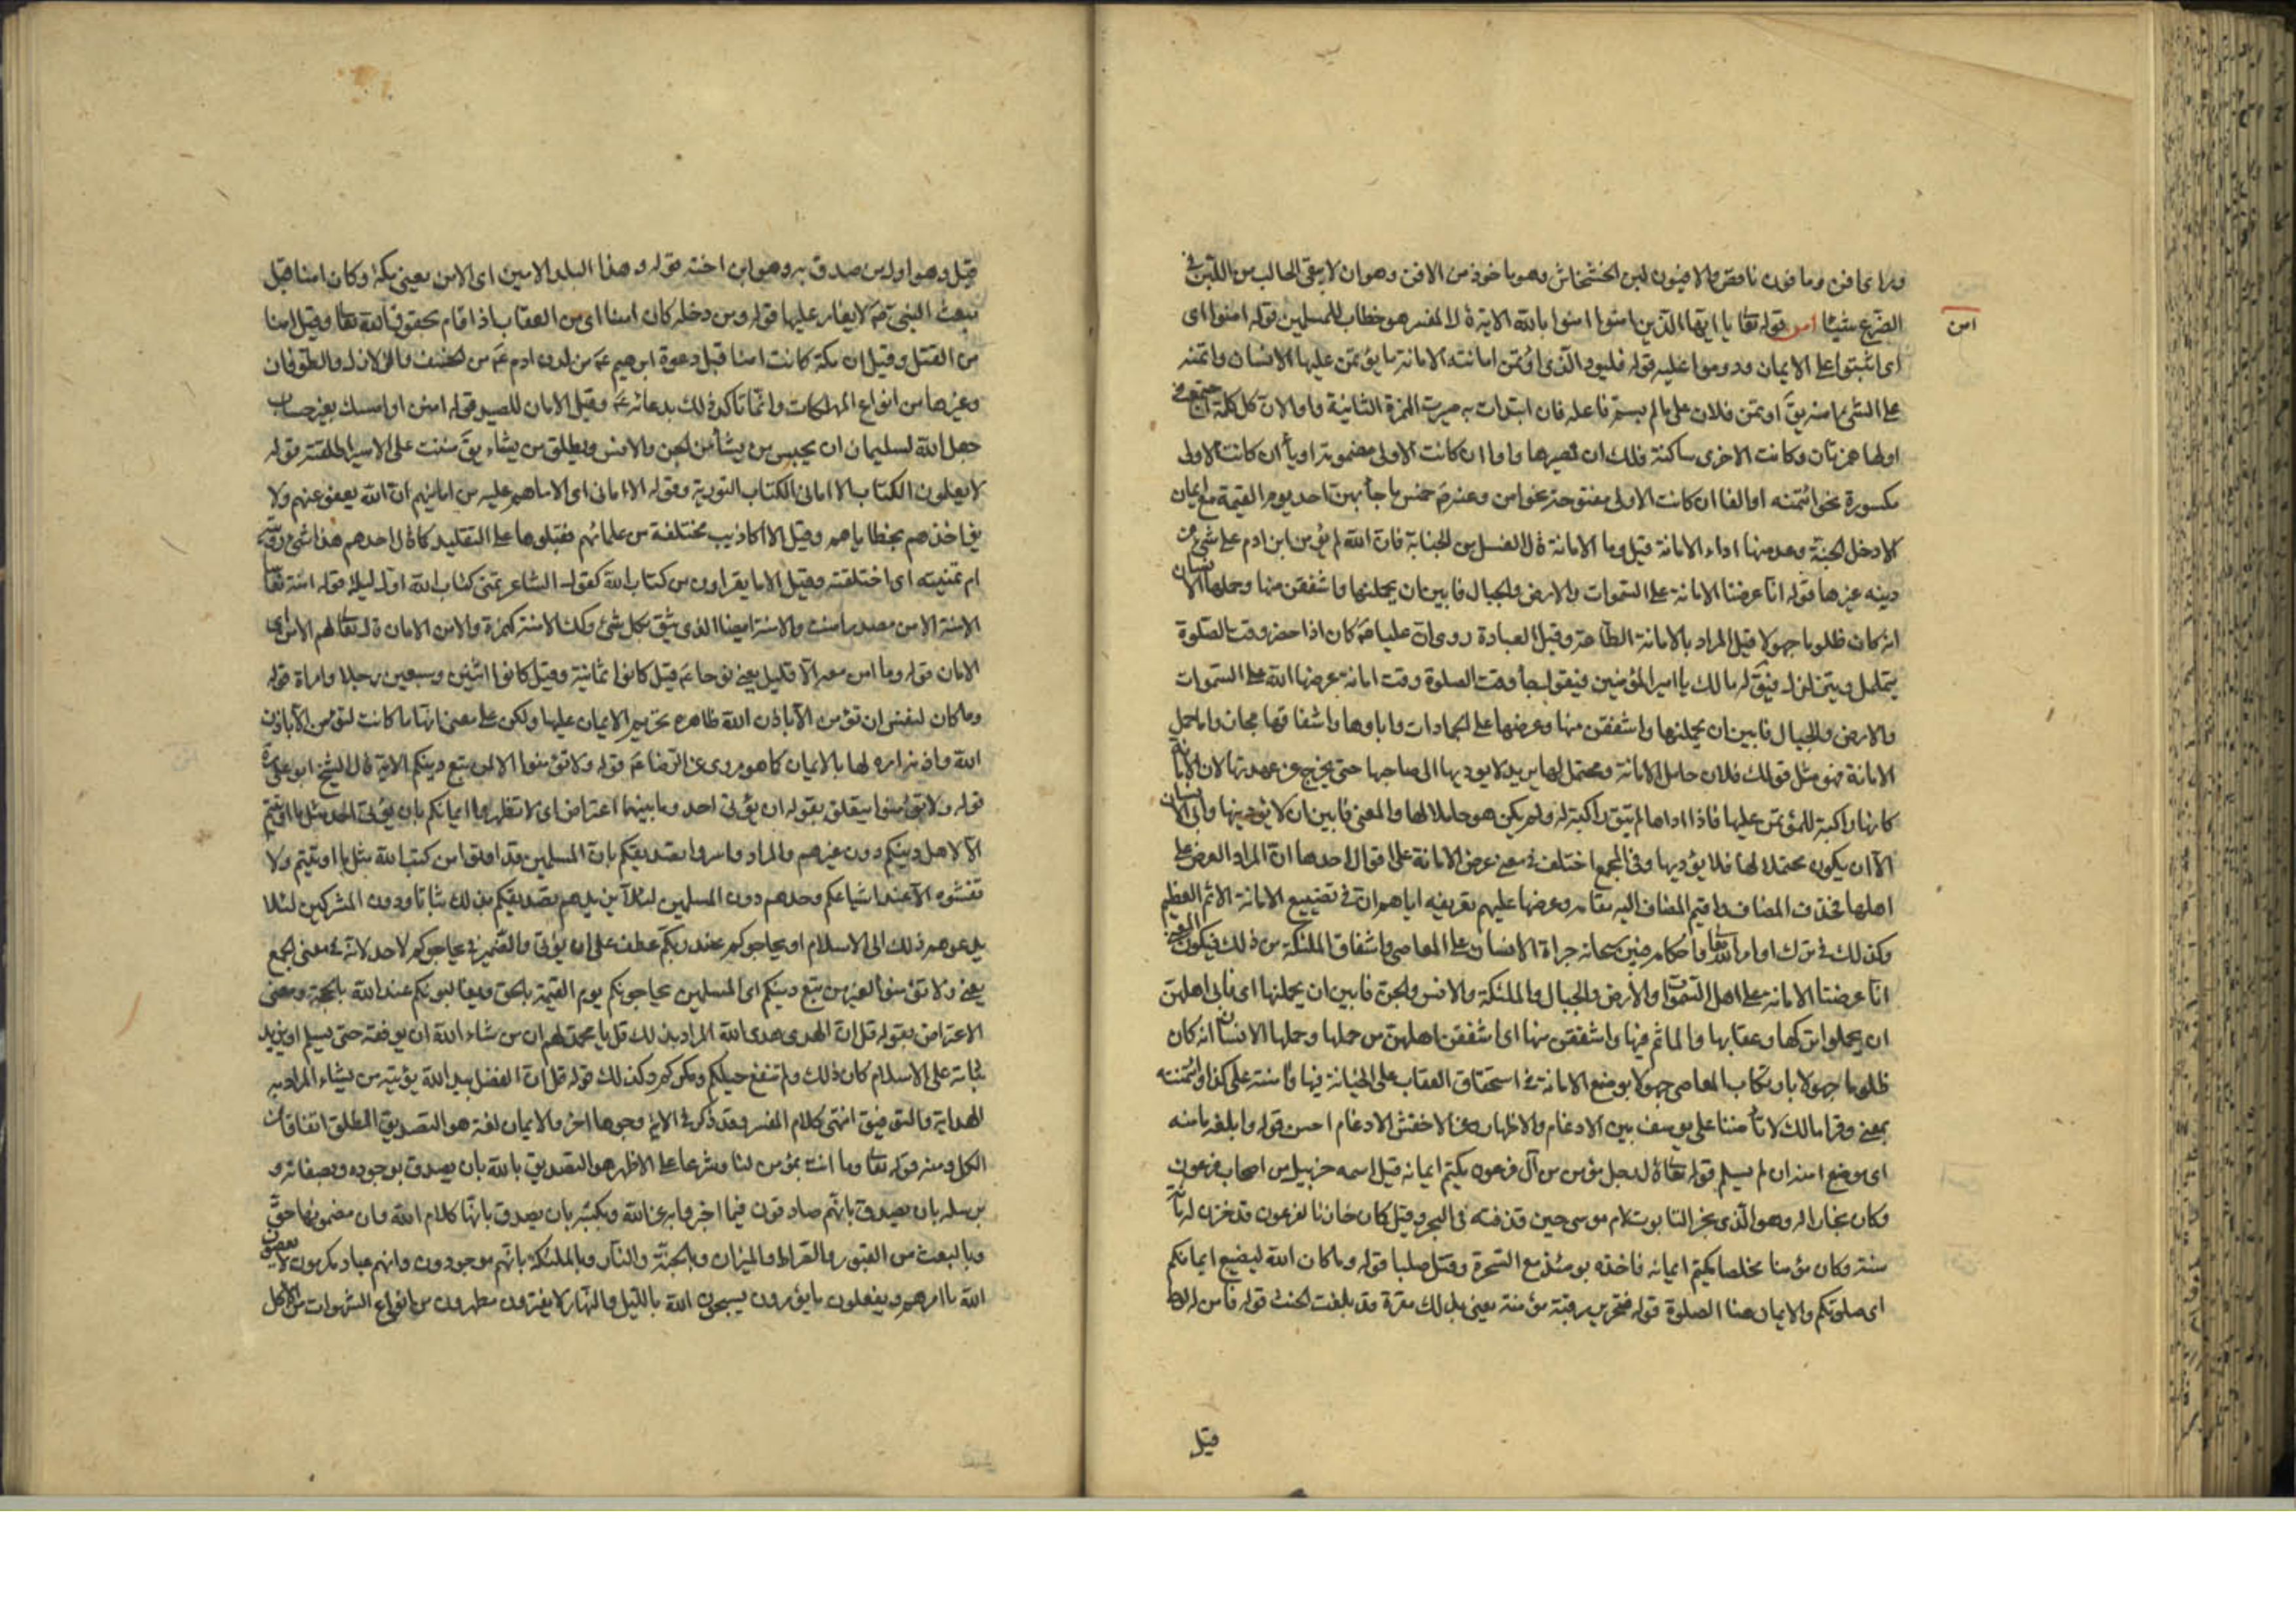 ورای افن وما فون ناقص والافیون لبن الخشخاش وهو ماخوذ من الافن وهو ان لا یبقی الحالب من اللبن فی
امن
الضرع شیئا امن قوله تعا یا ایها الذین امنوا امنوا بالله الایة قال المفسر هو خطاب للمسلمین قوله امنوا ای
ای اثبتوا علی الایمان ودوموا علیه قوله فلیود الذی اؤتمن امانته الامانة ما یؤتمن علیها الانسان وائتمنه
علی الشیء امنه یق اوتمن فلان علی ما لم یسم فاعله فان ابتدات به صیرت الهمزة الثانیة واوا لان کل کلمة اجتمع فی
اولها همزتان وکانت الاخری ساکنة فلک ان تصیرها واوا ان کانت الاولی مضمومة او یاء ان کانت الاولی
مکسورة نحو ائتمنه او الفا ان کانت الاولی مفتوحة نحو امن وعنه ص خمس ما جاء بهن احد یوم القیمة مع ایمان
الا دخل الجنة وعد منها اداء الامانة قیل وما الامانة قال الغسل من الجنابة فان الله لم یؤمن ابن ادم علی شیء من
دینه غیرها قوله انا عرضنا الامانة علی السموات والارض والجبال فابین ان یحملنها واشفقن منها وحملها الانسان
انه کان ظلوما جهولا قیل المراد بالامانة الطاعة وقیل العبادة روی ان علیا ع کان اذا حضر وقت الصلوة
یتململ ویتزلزل فیق له مالک یا امیر المؤمنین فیقول جاء وقت الصلوة وقت امانة عرضها الله علی السموات
والارض والجبال فابین ان یحملنها واشفقن منها وعرضها علی الجمادات واباوها واشفاقها مجاز واما حمل
الامانة فهو مثل قولک فلان حامل الامانة ومحتمل لها یرید لا یودیها الی صاحبها حتی یخرج عن عهدتها لان الامانة
کانها راکبة للمؤتمن علیها فاذا اداها لم تبق راکبة له ولم یکن هو حاملا لها والمعنی فابین ان لا یؤدینها وابی الانسان
الا ان یکون محتملا لها فلا یؤدیها وفی المجمع اختلف فی معنی عرض الامانة علی اقوال احدها ان المراد العرض علی
اهلها فحذف المضاف واقیم المضاف الیه مقامه وعرضها علیهم تعریفه ایاهم ان فی تضییع الامانة الاثم العظیم
وکذلک فی ترک اوامر الله تعا واحکامه فبین سبحانه جراة الانسان علی المعاصی واشفاق الملئکة من ذلک فیکون المعنی
انا عرضنا الامانة علی اهل السموات والارض والجبال والملئکة والانس والجن فابین ان یحملنها ای فابی اهلهن
ان یحملوا ترکها وعقابها والماثم فیها واشفقن منها ای اشفقن اهلهن من حملها وحملها الانسان انه کان
ظلوما جهولا بارتکاب المعاصی جهولا بموضع الامانة فی استحقاق العقاب علی الخیانة فیها وامنته علی کذا وائتمنته
بمعنی وقرا مالک لا تأمننا علی یوسف بین الادغام والاظهار وعن الاخفش الادغام احسن قوله وابلغه مامنه
ای موضع امنه ان لم یسلم قوله تعا قال رجل مؤمن من آل فرعون یکتم ایمانه قیل اسمه حزبیل من اصحاب فرعون
وکان نجارا له وهو الذی نجر التابوت لام موسی حین قذفته فی البحر وقیل کان خازنا لفرعون قد خزن له مائة
سنة وکان مؤمنا مخلصا یکتم ایمانه فاخذه یومئذ مع السحرة وقتل صلبا قوله وما کان الله لیضیع ایمانکم
ای صلوتکم والایمان هنا الصلوة قوله فتحریر رقبة مؤمنة یعنی بذلک مقرة قد بلغت الحنث قوله فامن له لوط
قیل
قیل وهو اول من صدق به وهو ابن اخته قوله وهذا البلد الامین ای الامن یعنی مکة وکان امنا قبل
مبعث النبی ص لا یغار علیها قوله ومن دخله کان امنا ای من العقاب اذا قام بحقوق الله تعا وقیل امنا
من القتل وقیل ان مکة کانت امنا قبل دعوة ابرهیم ع من لدن ادم ع من الخسف والزلازل والطوفان
وغیرها من انواع المهلکات وانما تاکد ذلک بدعائه ع وقیل الامان للصید قوله امنن او امسک بغیر حساب
جعل الله لسلیمان ان یحبس من یشاء من الجن والانس ویطلق من یشاء یق مننت علی الاسیر اطلقته قوله
لا یعلمون الکتاب الا امانی الکتاب التوریة وقوله الا امانی ای الا ما هم علیه من امانیهم ان الله یعفو عنهم ولا
یؤاخذهم بخطایاهم وقیل الا اکاذیب مختلفة من علمائهم فقبلوها علی التقلید کما قال احدهم هذا شیء رویته
ام تمنیته ای اختلقته وقیل الا ما یقراون من کتاب الله کقول الشاعر تمنی کتاب الله اول لیلة قوله امنة نعاسا
الامنة الامن مصدر امنت والامنة ایضا الذی یثق بکل شیء وکذلک الامنة کهمزة والامن الامان قوله تعا لهم الامن ای
الامان قوله وما امن معه الا قلیل یعنی نوحا ع قیل کانوا ثمانیة وقیل کانوا اثنین وسبعین رجلا وامراة قوله
وما کان لنفس ان تؤمن الا باذن الله ظاهره تحریم الایمان علیها ولکن علی معنی انها ما کانت لتؤمن الا باذن
الله واذنه امره لها بالایمان کما هو مروی عن الرضا ع قوله ولا تؤمنوا الا لمن تبع دینکم الایة قال الشیخ ابو علی ره
قوله ولا تؤمنوا یتعلق بقوله ان یؤتی احد وما بینهما اعتراض ای لا تظهروا ایمانکم بان یؤتی احد مثل ما اوتیتم
الا لاهل دینکم دون غیرهم والمراد واسروا تصدیقکم بان المسلمین قد اوتوا من کتب الله مثل ما اوتیتم ولا
تفشوه الا عند اشیاعکم وحدهم دون المسلمین لئلا یزیدهم تصدیقکم بذلک ثباتا ودون المشرکین لئلا
یدعوهم ذلک الی الاسلام او یحاجوکم عند ربکم عطف علی ان یؤتی والضمیر فی یحاجوکم لاحد لانه فی معنی الجمع
یعنی ولا تؤمنوا لغیر من تبع دینکم ای المسلمین یحاجونکم یوم القیمة بالحق ویغالبونکم عند الله بالحجة ومعنی
الاعتراض بقوله قل ان الهدی هدی الله المراد بذلک قل یا محمد لهم ان من شاء الله ان یوفقه حتی یسلم او یزید
ثباته علی الاسلام کان ذلک ولم تنفع حیلکم ومکرکم وکذلک قوله قل ان الفضل بید الله یؤتیه من یشاء المراد به
الهدایة والتوفیق انتهی کلام المفسر وقد ذکر فی الایة وجوها اخر والایمان لغة هو التصدیق المطلق اتفاقا من
الکل ومنه قوله تعا وما انت بمؤمن لنا وشرعا علی الاظهر هو التصدیق بالله بان یصدق بوجوده وبصفاته و
برسله بان یصدق بانهم صادقون فیما اخبروا به عن الله وبکتبه بان یصدق بانها کلام الله وان مضمونها حق
وبالبعث من القبور والصراط والمیزان وبالجنة والنار وبالملئکة بانهم موجودون وانهم عباد مکرمون لا یعصون
الله ما امرهم ویفعلون ما یؤمرون یسبحون الله باللیل والنهار لا یفترون مطهرون من انواع الشهوات من الاکل